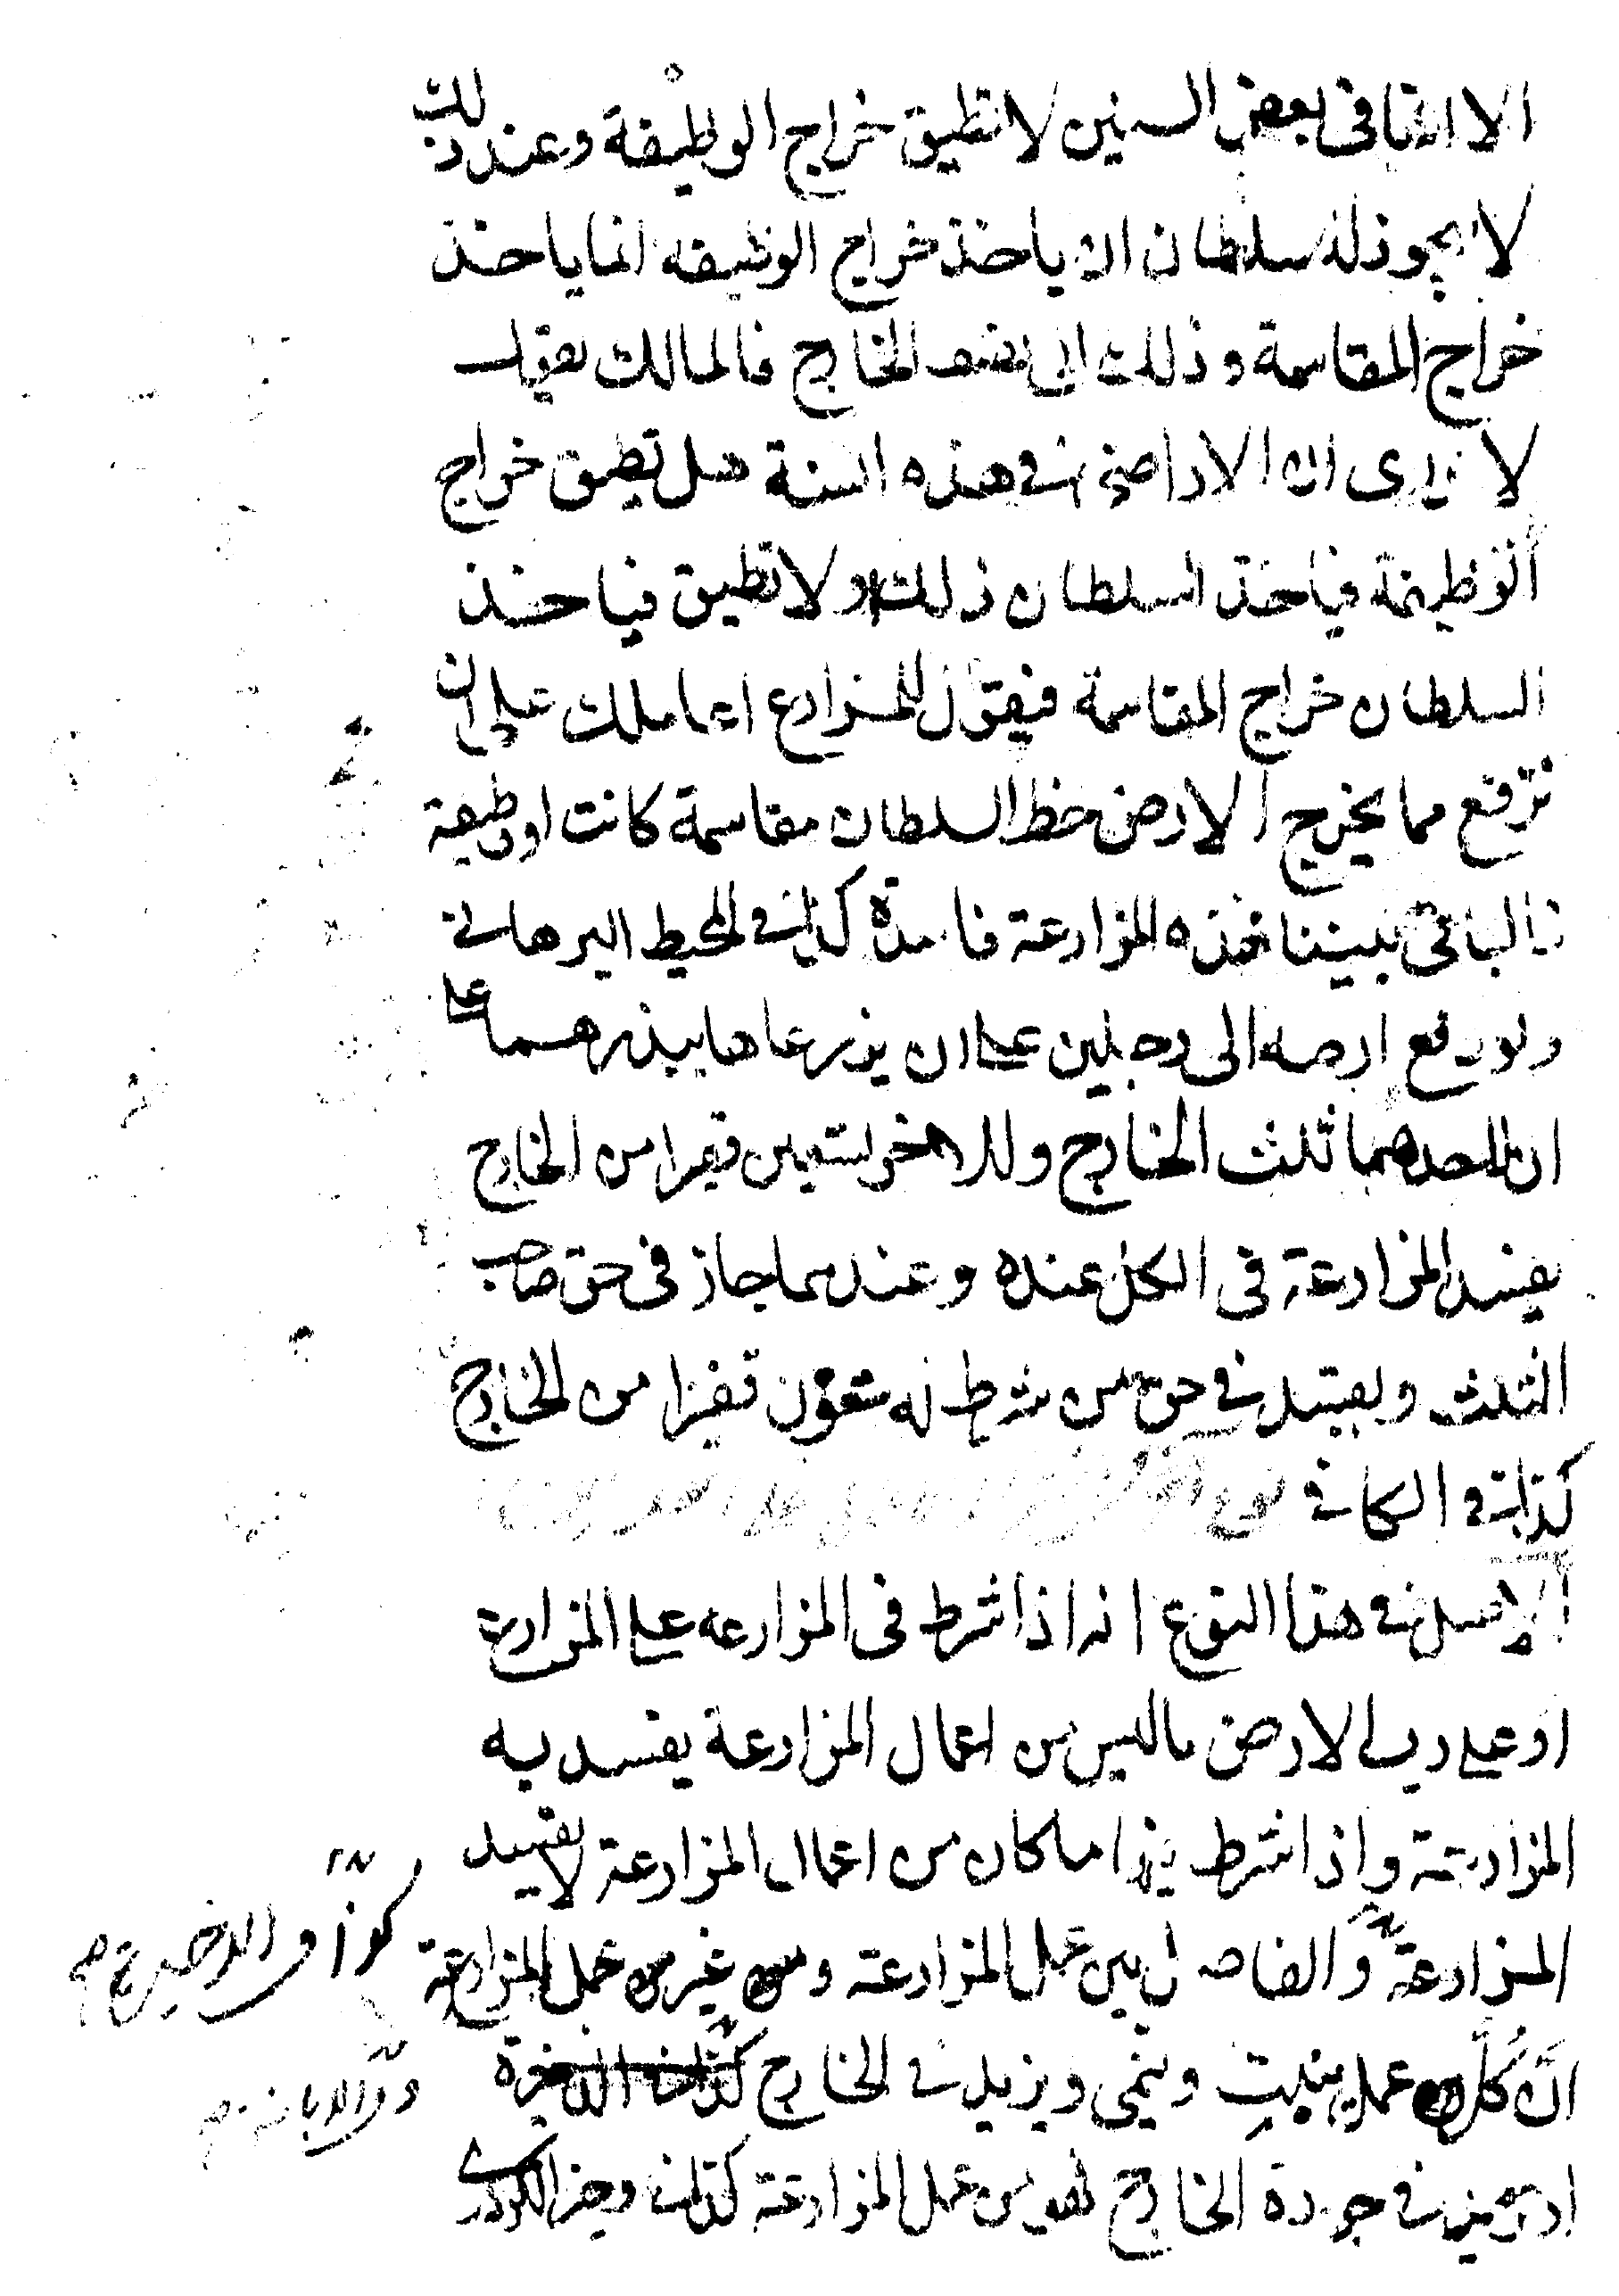 الا انها فى بعض السنين لا تطيق خراج الوظيفة وعند ذلك
لا يجوز للسلطان ان ياخذ خراج الوظيفة انما ياخذ
خراج المقاسمة وذلك الى نصف الخارج فالمالك يقول
لا ندرى ان الاراضى فى هذه السنة هل تطيق خراج
الوظيفة فياخذ السلطان ذلك او لا تطيق فياخذ
السلطان خراج المقاسمة فيقول للمزارع اعاملك على ان
ترفع مما يخرج الارض حظ السلطان مقاسمة كانت او وظيفة
والباقى بيننا فهذه المزارعة فاسدة كذا فى المحيط البرهانى
ولو دفع ارضه الى رجلين على ان يزرعاها ببذرهما على
ان لاحدهما ثلث الخارج وللاخر تسعين قفيزا من الخارج
يفسد المزارعة فى الكل عنده وعندهما جاز فى حق صاحب
الثلث ويفسد فى حق من شرط له تسعون قفيزا من الخارج
كذا فى الكافى نوع
الاصل فى هذا النوع انه اذا شرط فى المزارعه على المزارع
او على رب الارض ما ليس من اعمال المزارعة يفسد به
المزارعة واذا شرط فيها ما كان من اعمال المزارعة لا يفسد
المزارعة والفاصل بين عمل المزارعة ومن غير من عمل المزارعة
انّ كُلّ عمل ينبت وينمى ويزيد فى الخارج كذا فى الذخيرة
او يزيد فى جودة الخارج فهو من عمل المزارعة كذا فى وجيز الكردرى
كذا فى الذخيرة